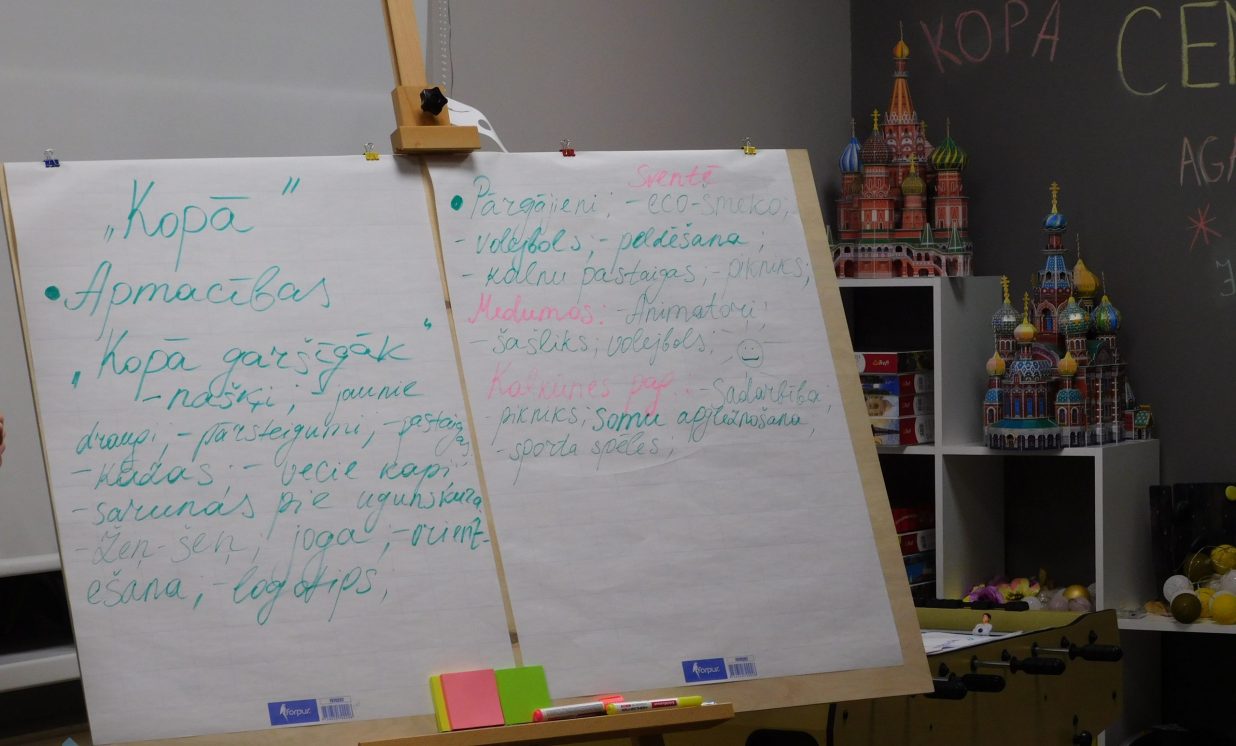 „Kopā"
• Apmacības
„Kopā garšīgāk"
- našķi; jaunie
draugi, - pārsteigumi, - pastaigas
- kūdas; - vecie kapi
- sarunas pie ugunskura
- Žeņ-šeņ; joga; - orient-
ēšana; - logotips;
forpus
Sventē
• Pārgājieni; - eco-smeko;
- volejbols; - peldēšana;
- kalnu pastaigas; - pikniks;
Medumos: - Animatori;
- šašliks; volejbols;
Kalkunes pag.: - Sadarbība;
- pikniks; Somu apgleznošana;
- sporta spēles;
forpus
KOPA
CEN
AGA